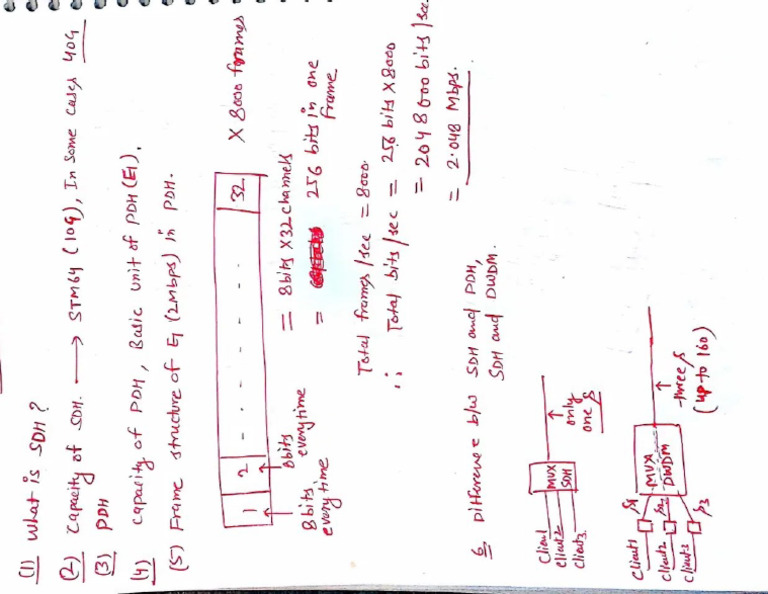 (1) What is SDH?
(2) Capacity of SDH. → STM64 (10G), In some cases 40G
(3) PDH
(4) capacity of PDH, Basic unit of PDH (E1).
(5) Frame structure of E1 (2Mbps) in PDH.
1 2 - - - - - - - 32 X 8000 frames
8bits everytime
8bits everytime
= 8bits X 32 channels
= 256 bits in one frame
Total frames/sec = 8000
∴ Total bits/sec = 256 bits X 8000
= 2048000 bits/sec
= 2.048 Mbps.
6 Difference b/w SDH and PDH,
SDH and DWDM.
Client1
client2
client3
MUX
SDH
only
one λ
Client1
client2
client3
λ1
λ2
λ3
MUX
DWDM
three λ
(up to 160)